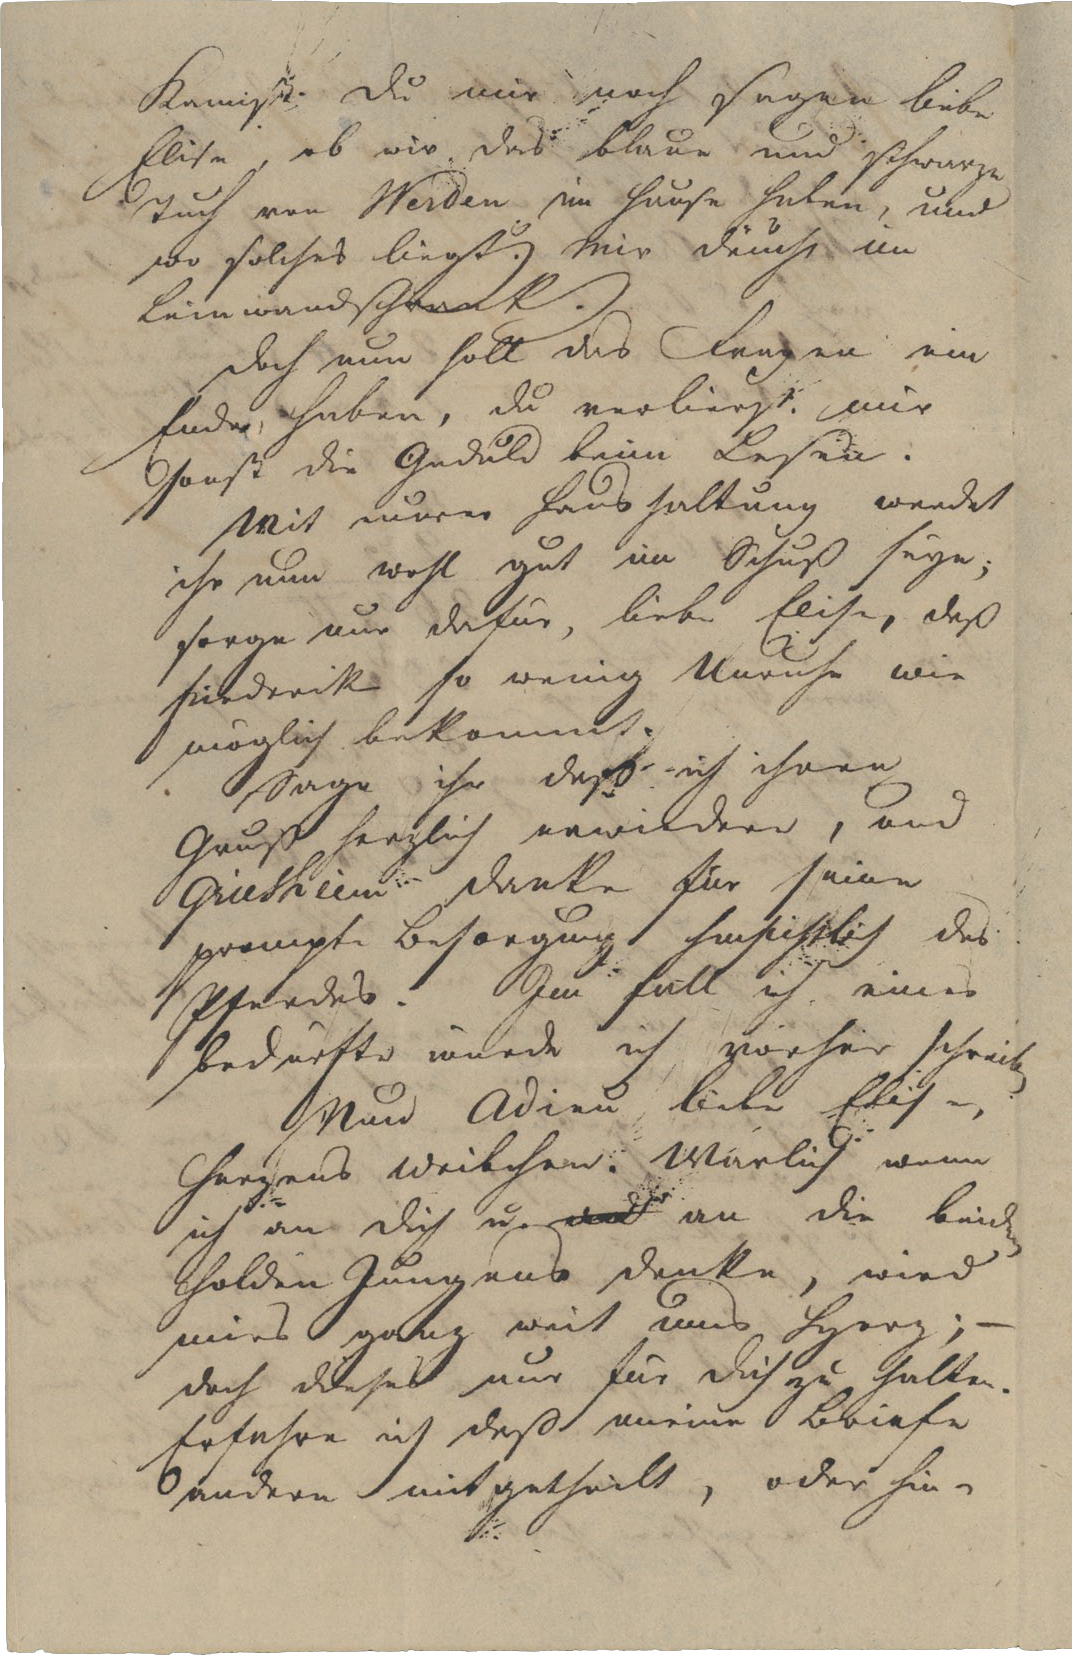 Kannst Du mir noch sagen liebe
Elise, ob wir das blaue und schwarze
Tuch von Werden im Hause haben, und
wo solches liegt? Mir däucht im
Leinwandschrank.
Doch nun soll das Fragen ein
Ende haben, du verlierst mir
sonst die Geduld beim Lesen.
Mit eurer Haushaltung werdet
ihr nun wohl gut im Schuß seyn;
sorge nur dafür, liebe Elise, daß
Friederike so wenig Unruhe wie
möglich bekommt.
Sage ihr daß ich ihren
Gruß herzlich erwiedere, und
Griesheim danke für seine
prompte Besorgung hinsichtlich des
Pferdes. Im fall ich eines
bedürfte würde ich vorher schreiben
Nun Adieu liebe Elise,
Herzens Weibchen. Warlich wenn
ich an Dich u. an die beiden
holden Jungens denke, wird
mirs ganz weit ums Herz; —
doch dieses nur für Dich zu halten.
Erfahre ich daß meine Briefe
andern mitgetheilt, oder hin-